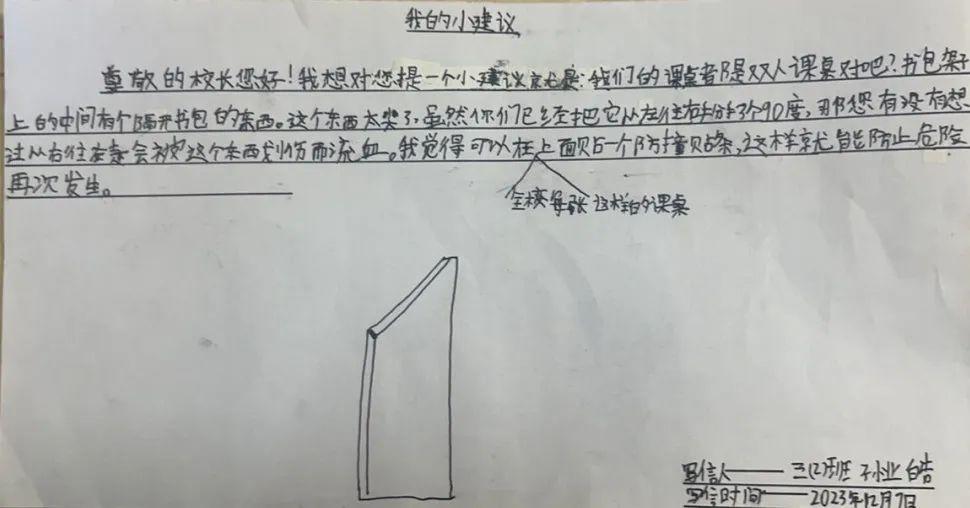 我的小建议
尊敬的校长您好！我想对您提一个小建议就是：我们的课桌都是双人课桌对吧？书包架子
上的中间有个隔开书包的东西。这个东西太尖了，虽然你们已经把它从左往右折了个90度，那您有没有想
过从右往左走会被这个东西划伤而流血。我觉得可以在上面贴一个防撞贴条，这样就能防止危险
再次发生。
全校每张这样的课桌
写信人—— 三(2)班 孙业皓
写信时间—— 2023年12月7日